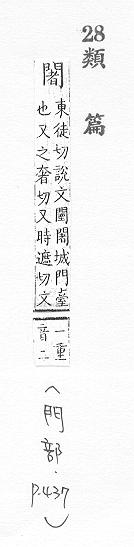 28
類篇
闍
東徒切說文闉闍城門臺
也又之奢切又時遮切文
一重
音二
(門部.
p.437)